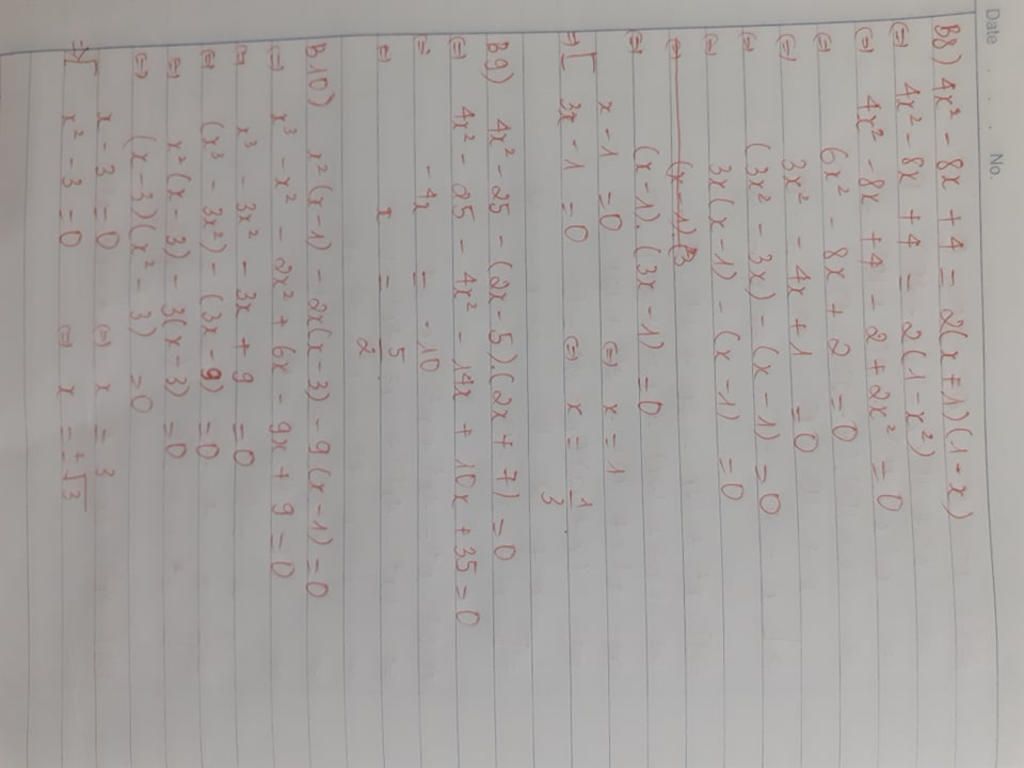 Date No.
B8) 4x² - 8x + 4 = 2(x+1)(1-x)
(=) 4x² - 8x + 4 = 2(1-x²)
(=) 4x² - 8x + 4 - 2 + 2x² = 0
(=) 6x² - 8x + 2 = 0
(=) 3x² - 4x + 1 = 0
(=) (3x² - 3x) - (x - 1) = 0
(=) 3x(x-1) - (x-1) = 0
(=) (x-1).(3x-1) = 0
x - 1 = 0 (=) x = 1
=> [ 3x - 1 = 0 (=) x = 1/3
B9) 4x² - 25 - (2x-5).(2x+7) = 0
(=) 4x² - 25 - 4x² - 14x + 10x + 35 = 0
(=) - 4x = -10
(=) x = 5/2
B10) x²(x-1) - 2x(x-3) - 9(x-1) = 0
(=) x³ - x² - 2x² + 6x - 9x + 9 = 0
(=) x³ - 3x² - 3x + 9 = 0
(=) (x³ - 3x²) - (3x - 9) = 0
(=) x²(x-3) - 3(x-3) = 0
(=) (x-3)(x²-3) = 0
x - 3 = 0 (=) x = 3
=> [ x² - 3 = 0 (=) x = ±√3